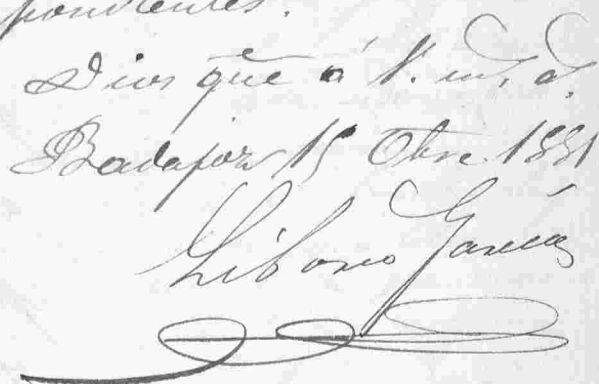 pondientes.
Dios gue á V. m.s a.s
Badajoz 15 Obre 1881
Liborio García